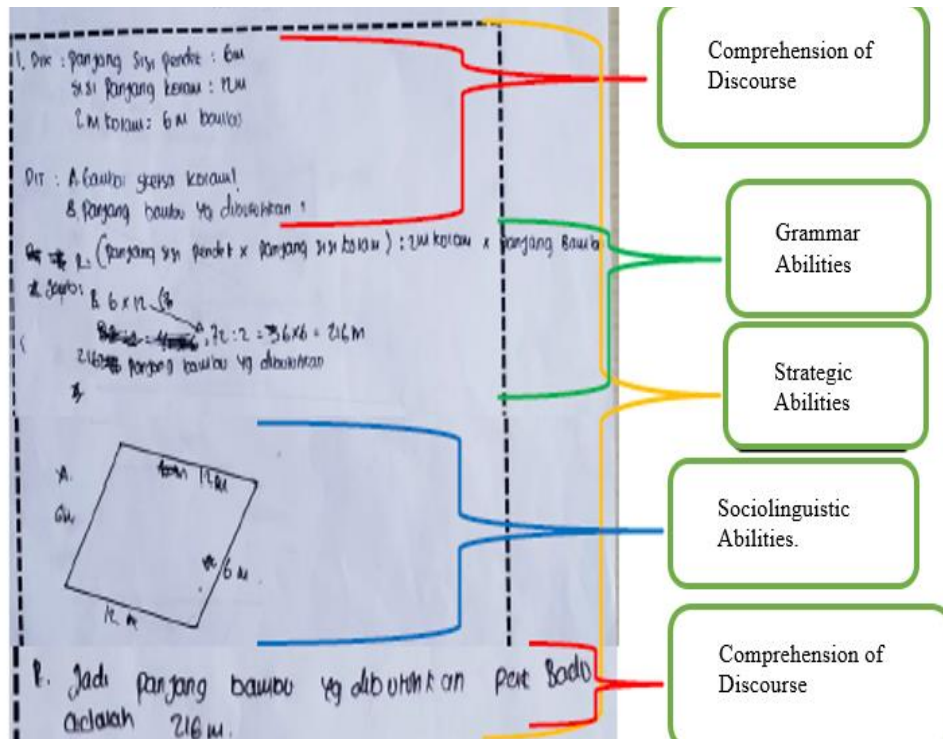 1. Dik : panjang sisi pendek : 6m
sisi panjang kolam : 12m
2m kolam : 6m bambu
DIT : A. kolam!
B. panjang bambu yg dibutuhkan
(panjang sisi pendek x panjang sisi kolam) : 2m kolam x panjang Bambu
Jawab:
B 6 x 12
72 : 2 = 36 x 6 = 216 m
216 panjang bambu yg dibutuhkan
A.
12m
6m
6 m
12 m
B. Jadi panjang bambu yg dibutuhkan
adalah 216 m.
Comprehension of
Discourse
Grammar
Abilities
Strategic
Abilities
Sociolinguistic
Abilities.
Comprehension of
Discourse